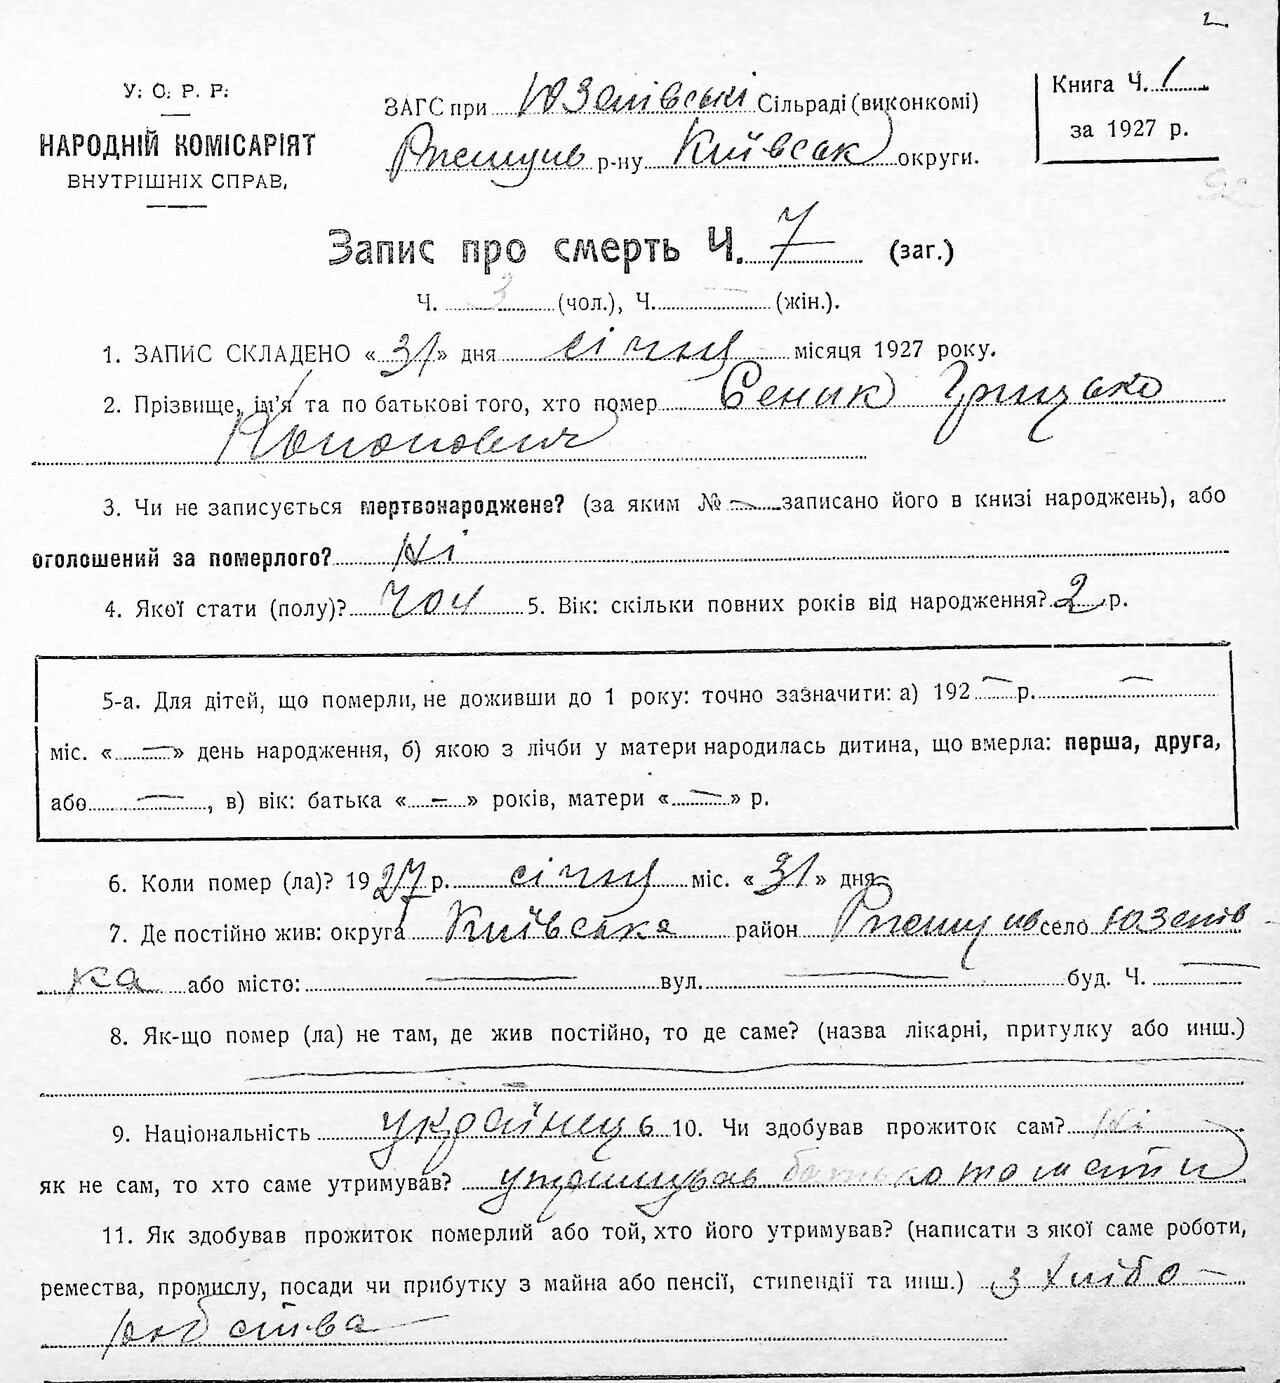 2.
У. С. Р. Р.
НАРОДНІЙ КОМІСАРІЯТ
ВНУТРІШНІХ СПРАВ,
ЗАГС при Юзепівські Сільраді (виконкомі)
Ржищив р-ну Київськ округи.
Книга Ч. 1
за 1927 р.
Запис про смерть Ч. 7 (заг.)
Ч. 3 (чол.), Ч. — (жін.).
1. ЗАПИС СКЛАДЕНО «31» дня січня місяця 1927 року.
2. Прізвище, ім'я та по батькові того, хто помер Сеник Грицько
Кононович
3. Чи не записується мертвонароджене? (за яким № — записано його в книзі народжень), або
оголошений за померлого? Ні
4. Якої стати (полу)? чол 5. Вік: скільки повних років від народження? 2 р.
5-а. Для дітей, що померли, не доживши до 1 року: точно зазначити: а) 192 — р. —
міс. « — » день народження, б) якою з лічби у матери народилась дитина, що вмерла: перша, друга,
або — , в) вік: батька « — » років, матери « — » р.
6. Коли помер (ла)? 1927 р. січня міс. «31» дня
7. Де постійно жив: округа Київська район Ржищив село Юзепів
ка або місто: — вул. — буд. Ч. —
8. Як-що помер (ла) не там, де жив постійно, то де саме? (назва лікарні, притулку або инш.)
9. Національність українець 10. Чи здобував прожиток сам? Ні
як не сам, то хто саме утримував? утримував батько та мати
11. Як здобував прожиток померлий або той, хто його утримував? (написати з якої саме роботи,
ремества, промислу, посади чи прибутку з майна або пенсії, стипендії та инш.) з хлібо-
робства